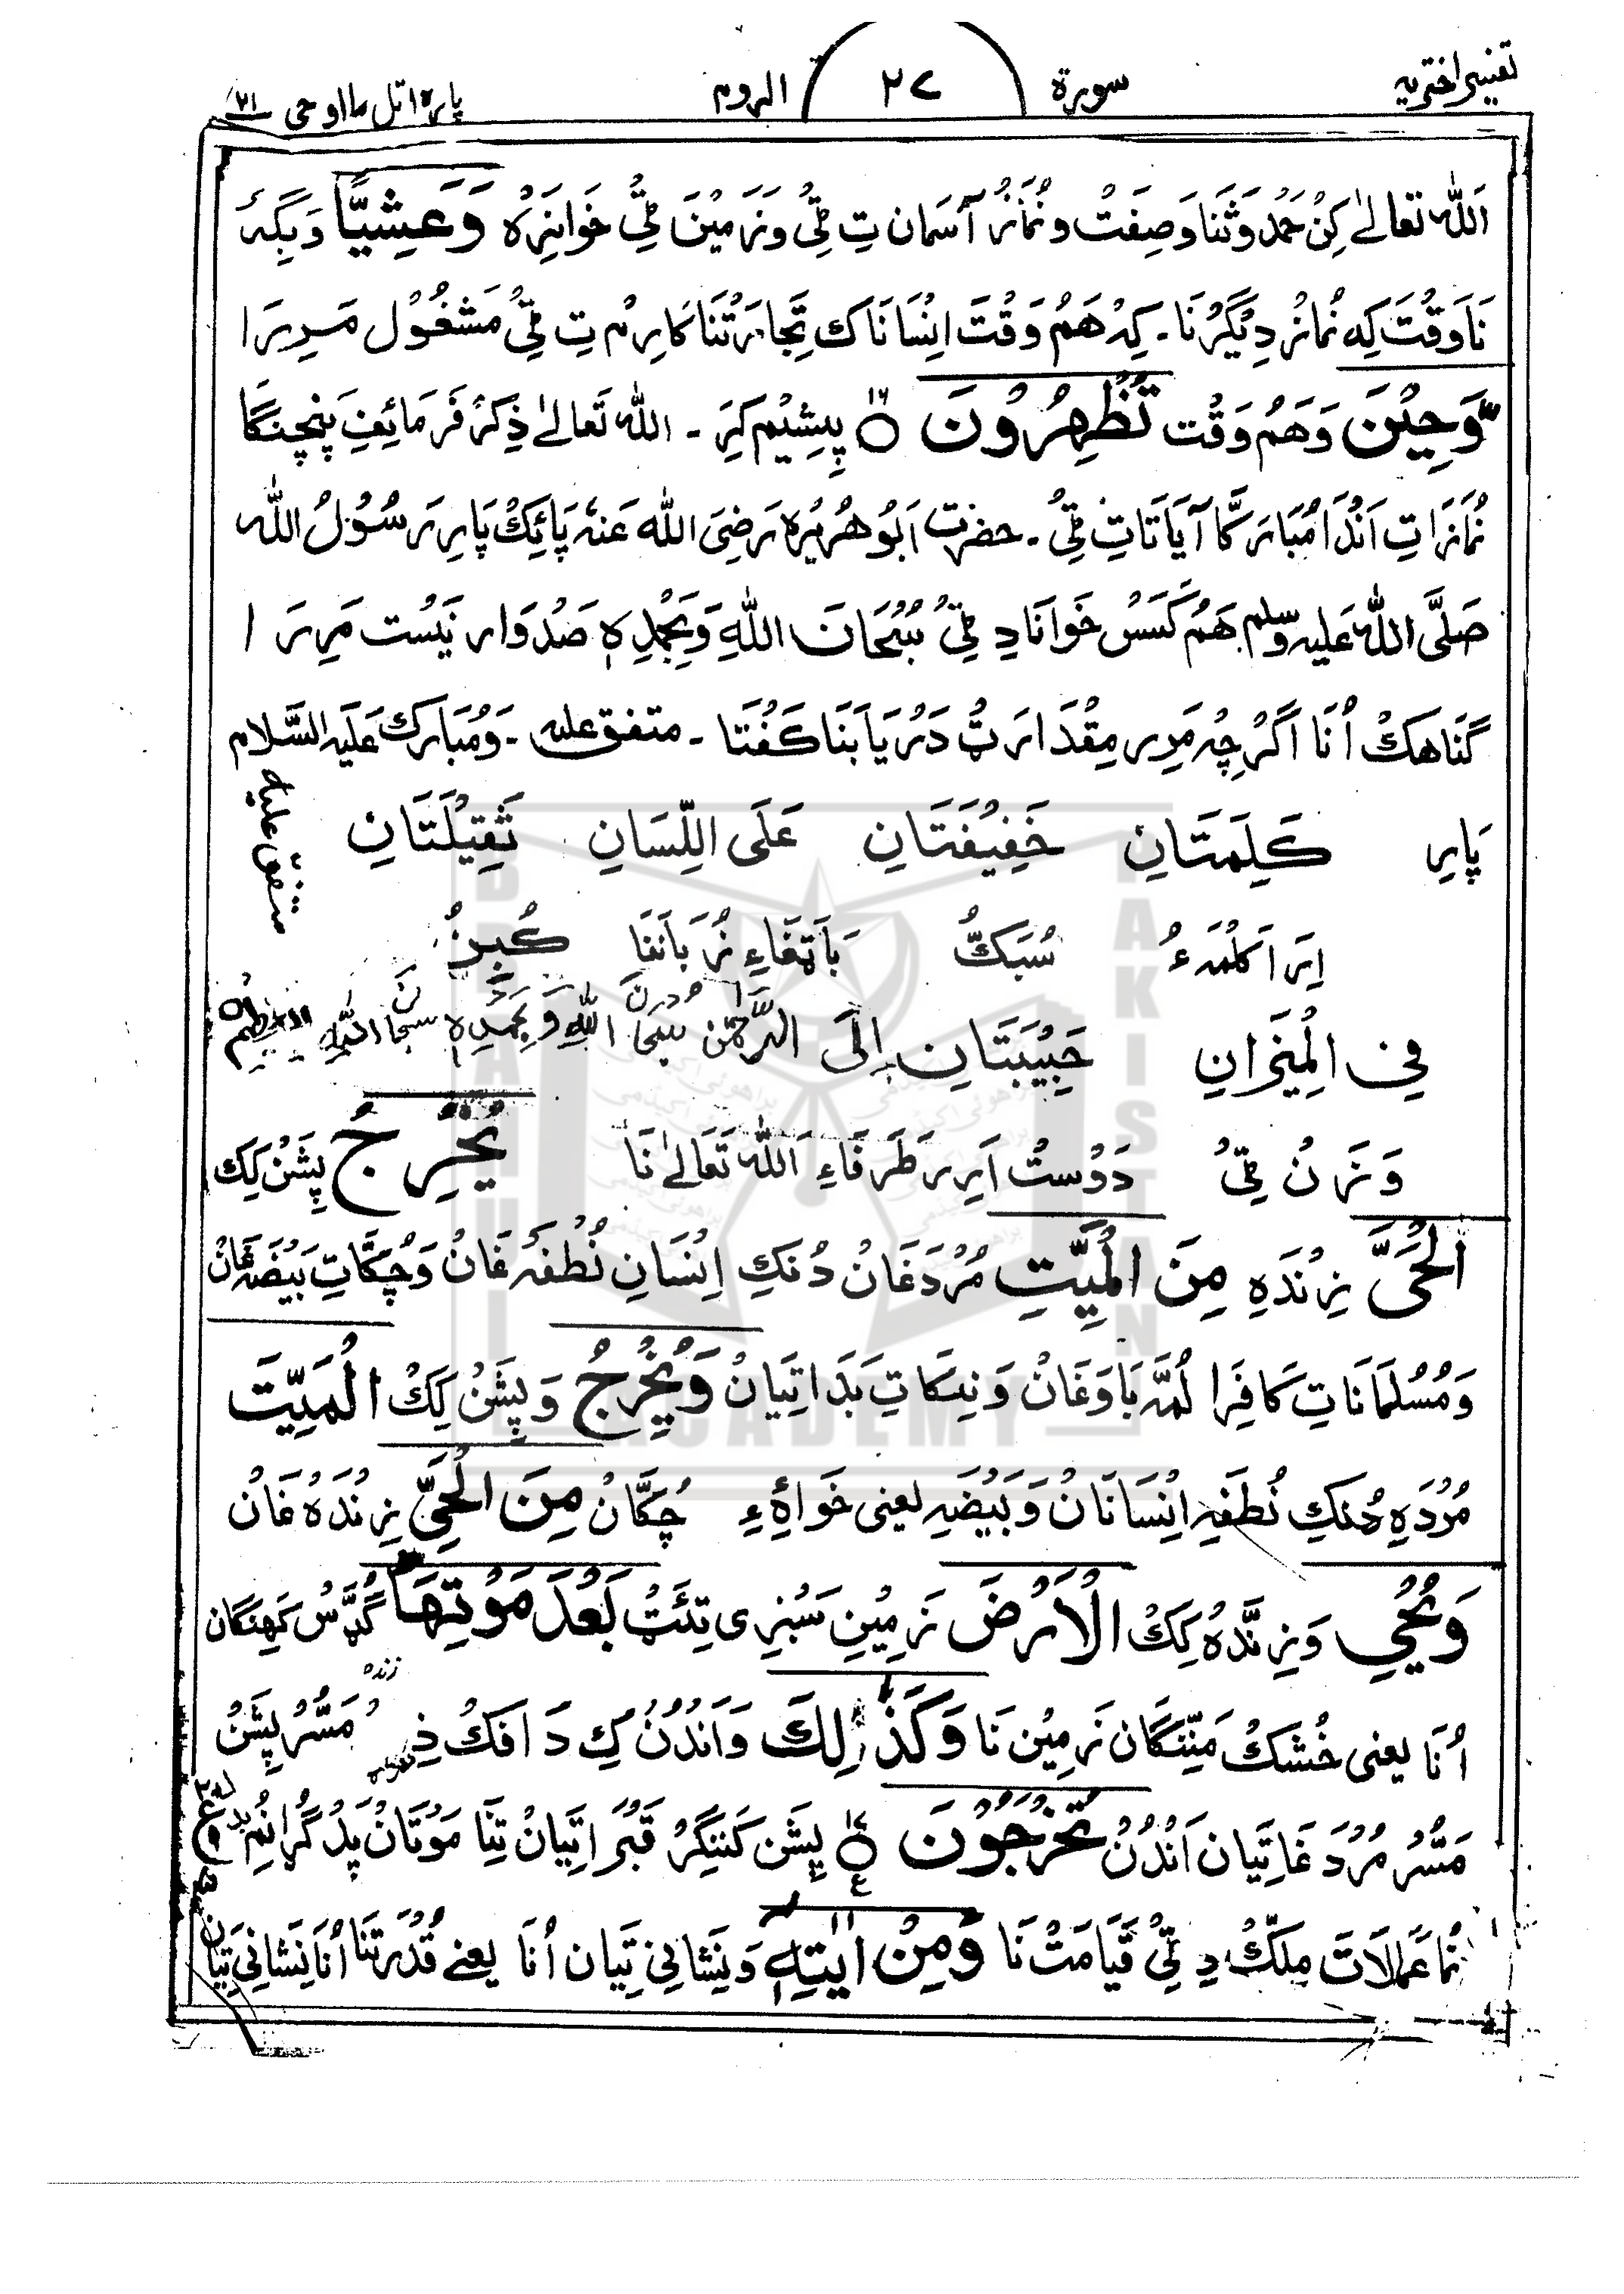 تفسیر اختریہ سورۃ ۲۷ الروم پارہ اتل ما اوحی ۲۱
اَللّٰه تعالےٰ کِنْ حَمْد وَثَنَا وَصِفَتْ و نُمَازُ آسْمَان تِ ٹِی وَزَمِیْنَ ٹِی خَوَانِرَہ وَعَشِیًّا وَبِگَہ
نَا وَقْتَ کِه نُمَازْ دِیْگَرْنَا۔ کِہ هَمُ وَقْتَ اِنْسَانَاک تِجَارَتْنَا کَارِمْ تِ ٹِیْ مَشْغُوْل مَرِیرَا
وَّحِیْنَ وَهَمُ وَقْت تُظْهِرُوْنَ ○ پِیشِیْم کِرَ ۔ اللّٰه تَعَالےٰ ذِکَرْ فَرمَائِفِ پَنچنگَا
نُمَازَاتِ اَنْدَا مُبَارَکَّا آیَاتَاتِ ٹِیْ ۔ حضرت اَبُوهُرَیْرَہ رَضِیَ اللّٰه عَنهٗ پَائِکْ پَارِ رَسُوْلُ اللّٰه
صَلَّی اللّٰهُ عَلیه وسلم هَمُ کَسَسْ خَوَانَا دِ ٹِیْ سُبْحَانَ اللّٰهِ وَبِحَمْدِہٖ صَدْ وَار نَیسْت مَرِرَا
گُنَاهَکْ اُنَا اَگَرْچِہ مَرِر مِقْدَار تْ دَرْیَابَنَا کَفْتَا ۔ متفق علیه ۔ وَمُبَارَک عَلَیهِ السَّلام
پَارِ کَلِمَتَانِ خَفِیْفَتَانِ عَلَی اللِّسَانِ ثَقِیْلَتَانِ
متفق علیه
اِرَا کَلْمَہءُ سُبَکُّ بَاتِغَاءِ زُبَانَنَا کُبِنُ
فِی الْمِیْزَانِ حَبِیْبَتَانِ اِلَی الرَّحْمٰن سُبْحَانَ اللّٰهِ وَبِحَمْدِہٖ سبحان اللّٰه العظیم
وَزَنُ ٹِیْ دَوْسْتْ اَرِر طَرَفَاءِ اَللّٰه تَعَالےٰ نَا یُخْرِجُ پِشَنْ کِک
الْحَیَّ زِنْدَہِ مِنَ الْمَیِّتِ مُرْدَغَانْ دُنکِ اِنْسَانِ نُطْفَہ غَانْ وَچُکَّاتِ بَیْضَہ غَانْ
وَمُسْلمَانَاتِ کَافِرَا لُمَّہ بَاوَغَانْ وَنِیکَاتِ بَدَاتِیَانْ وَیُخْرِجُ وَ پِشَنْ کِکْ الْمَیِّتَ
مُرْدَہِ دُنکِ نُطْفَہِ اِنْسَانَانْ وَ بَیْضَہِ یعنی خَوَاہِءِ چُکَّانْ مِنَ الْحَیِّ زِنْدَہ غَان
وَیُحْیِ وَزِنْدَہ کِکْ الْاَرْضَ زَمِیْنِ سَبْزِی تِئَتْ بَعْدَ مَوْتِهَا گُدَّسْ کَهِنگَان
اُنَا یعنی خُشک مَنِّنگَان زَمِیْن نَا وَکَذٰلِكَ وَاَنْدُنْ کِ دَافَکْ زنده مَسُّر پِشَنْ
مَسُّر مُرْدَغَاتِیَان اَنْدُنْ تُخْرَجُوْنَ ○ پِشَن کَنِنگِرْ قَبْرَاتِیَانْ تِنَّا مَوْتَانْ پَدْ گُڑَانُم
نُمَا عَمَلَاتَ مِلِکْ دِ ٹِیْ قَیَامَتْ نَا وَمِنْ اٰیٰتِهٖ وَنِشَانِی تِیَان اُنَا یعنے قُدْرَتَنَا اُنَا نِشَانِی تِیَان
BRAHUI ACADEMY PAKISTAN